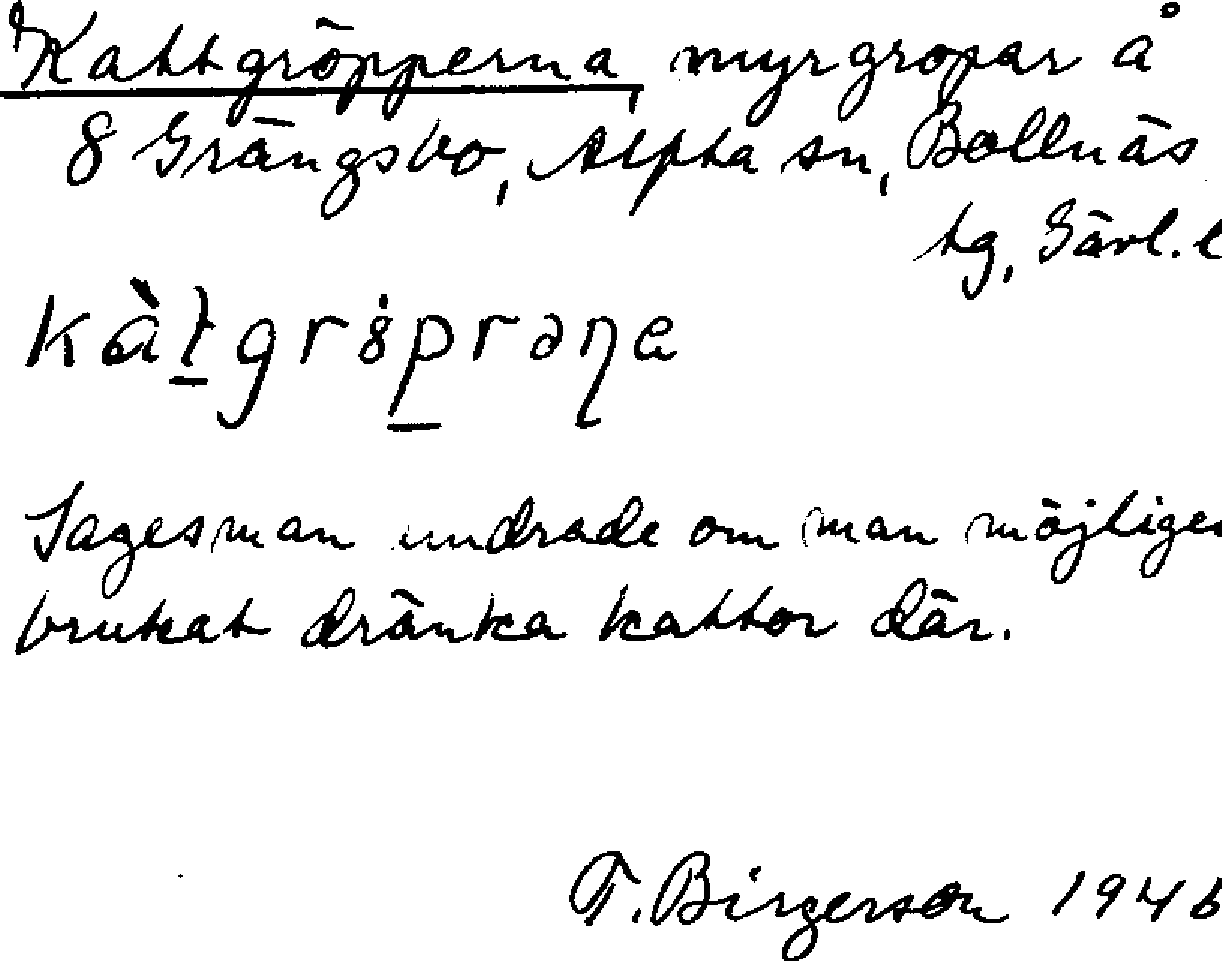 Kattgröpperna, myrgropar å
8 Grängsbo, Alfta sn, Bollnäs
tg, Gävl. l
Sagesman undrade om man möjligen
brukat dränka kattor där.
T. Birgerson 1946